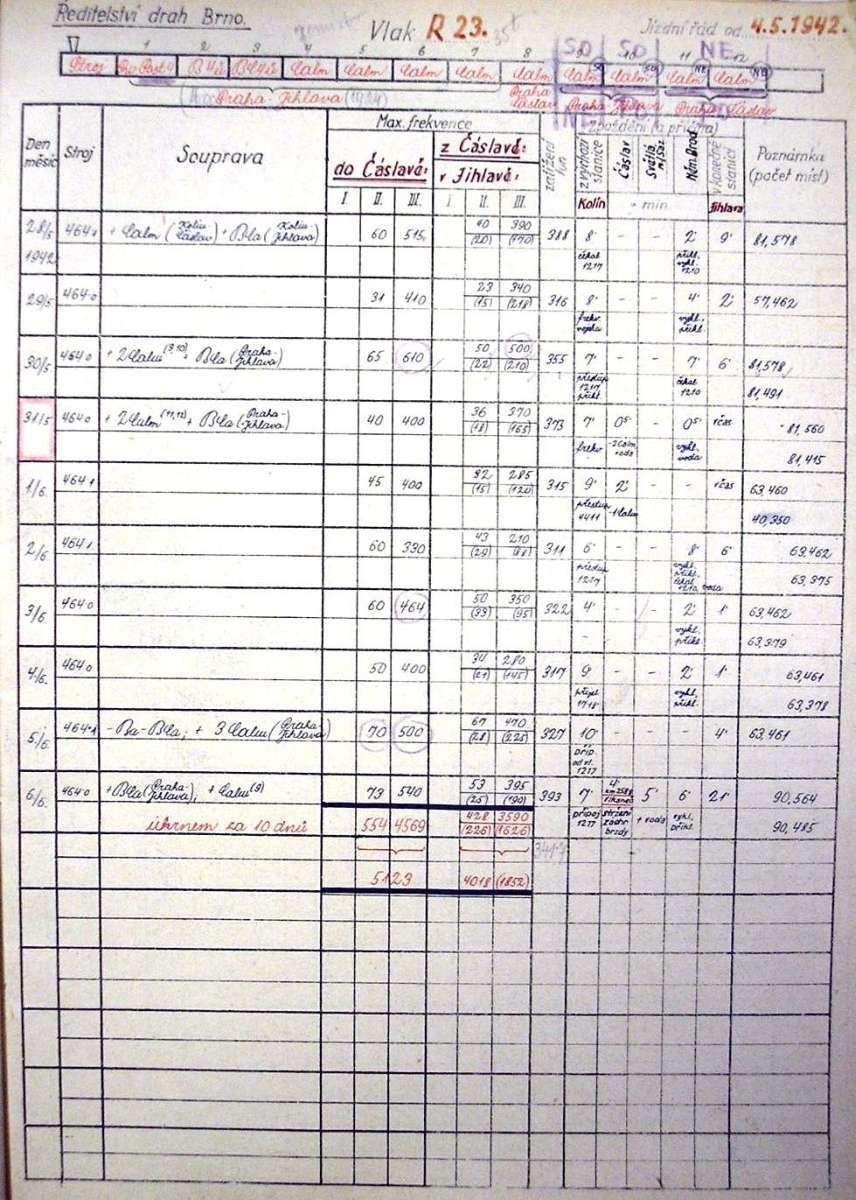 Ředitelství drah Brno.
Vlak R 23.
Jízdní řád od 4.5.1942.
1 2 3 4 5 6 7 8
Stroj
Calm Calm Calm Calm Calm
SO SO NE
Praha-Jihlava
Praha Čáslav
Praha-Jihlava
Den měsíc
Stroj
Souprava
Max. frekvence
do Čáslavě:
z Čáslavě:
v Jihlavě:
I. II. III. I II. III.
zatížení tun
z výchozí stanice
Čáslav
Světlá n/Sáz.
Něm.Brod
v konečné stanici
Poznámka (počet míst)
Kolín
min.
Jihlava
28/5 464.1 + Calm (Kolín-Čáslav) + BCa (Kolín-Jihlava) 60 515 40 390 388 8' - - 2' 9' 81,578
1942 (20) (170) čekal 1217 přikl. vykl. 1210
29/5 464.0 31 410 23 340 316 8' - - 4' 2' 57,462
(15) (218) frekv. vojska vykl. přikl.
30/5 464.0 + 2Calm (9,10) + BCa (Praha-Jihlava) 65 610 50 500 355 7' - - 7' 6' 81,578
(22) (210) přestup 1217 přikl. čekal 1210 81,491
31/5 464.0 + 2Calm (11,12) + BCa (Praha-Jihlava) 40 400 36 370 373 7' 05' - 05' včas 81,560
(18) (165) frekv. -2Calm, voda vykl. voda 81,415
1/6 464.1 45 400 42 285 315 9' 2' - - včas 63,460
(15) (120) přestup 4411 -1Calm 40,350
2/6 464.1 60 330 43 210 311 6' - - 8' 6' 63,462
(29) přestup 1217 vykl. přikl. čekal 1210, voda 63,375
3/6 464.0 60 464 50 350 322 4' - - 2' 1' 63,462
(33) (95) - - vykl. přikl. 63,379
4/6 464.0 50 400 34 280 317 9' - - 2' 1' 63,461
(21) (145) vykl. přikl. 63,378
5/6 464.1 - Ba-BCa, + 3Calm (Praha-Jihlava) 70 500 67 470 327 10' - - - 4' 63,461
(28) (225) příp. od vl. 1217
6/6 464.0 + BCa (Praha-Jihlava), + Calm (9) 73 540 53 395 393 7' 4' 5' 6' 21' 90,564
(25) (190) přípoj 1217 stržení záchr. brzdy + voda vykl. přikl. 90,485
úhrnem za 10 dnů 554 4569 428 3590
(226) (1626)
5123 4018 (1852)